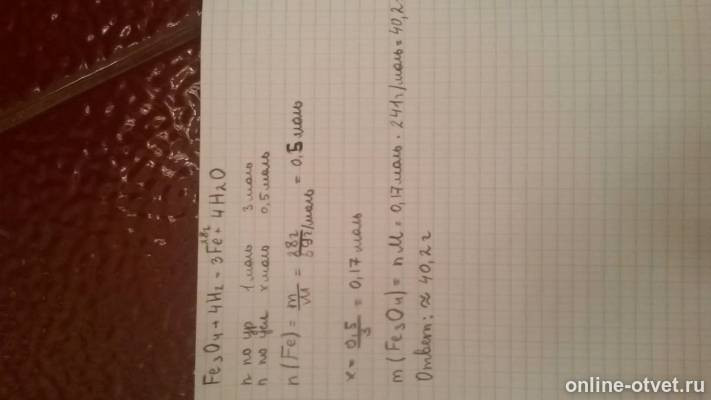 28г
Fe3O4 + 4H2 = 3Fe + 4H2O
n по ур 1 моль 3 моль
n по усл x моль 0,5 моль
n (Fe) = m/M = 28г / г/моль = 0,5 моль
x = 0,5/3 = 0,17 моль
m (Fe3O4) = nM = 0,17 моль · 241 г/моль = 40,2 г
Ответ: ≈ 40,2 г
online-otvet.ru